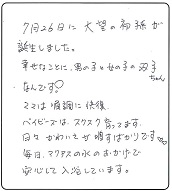 7月26日に 大望の初孫が
誕生しました。
幸せなことに、男の子と女の子の双子
ちゃん
なんです♡
ママは順調に快復
ベイビーズは スクスク育ってます。
日々 かわいさが 増すばかりです
毎日、マクアスの水のおかげで
安心して入浴しています。